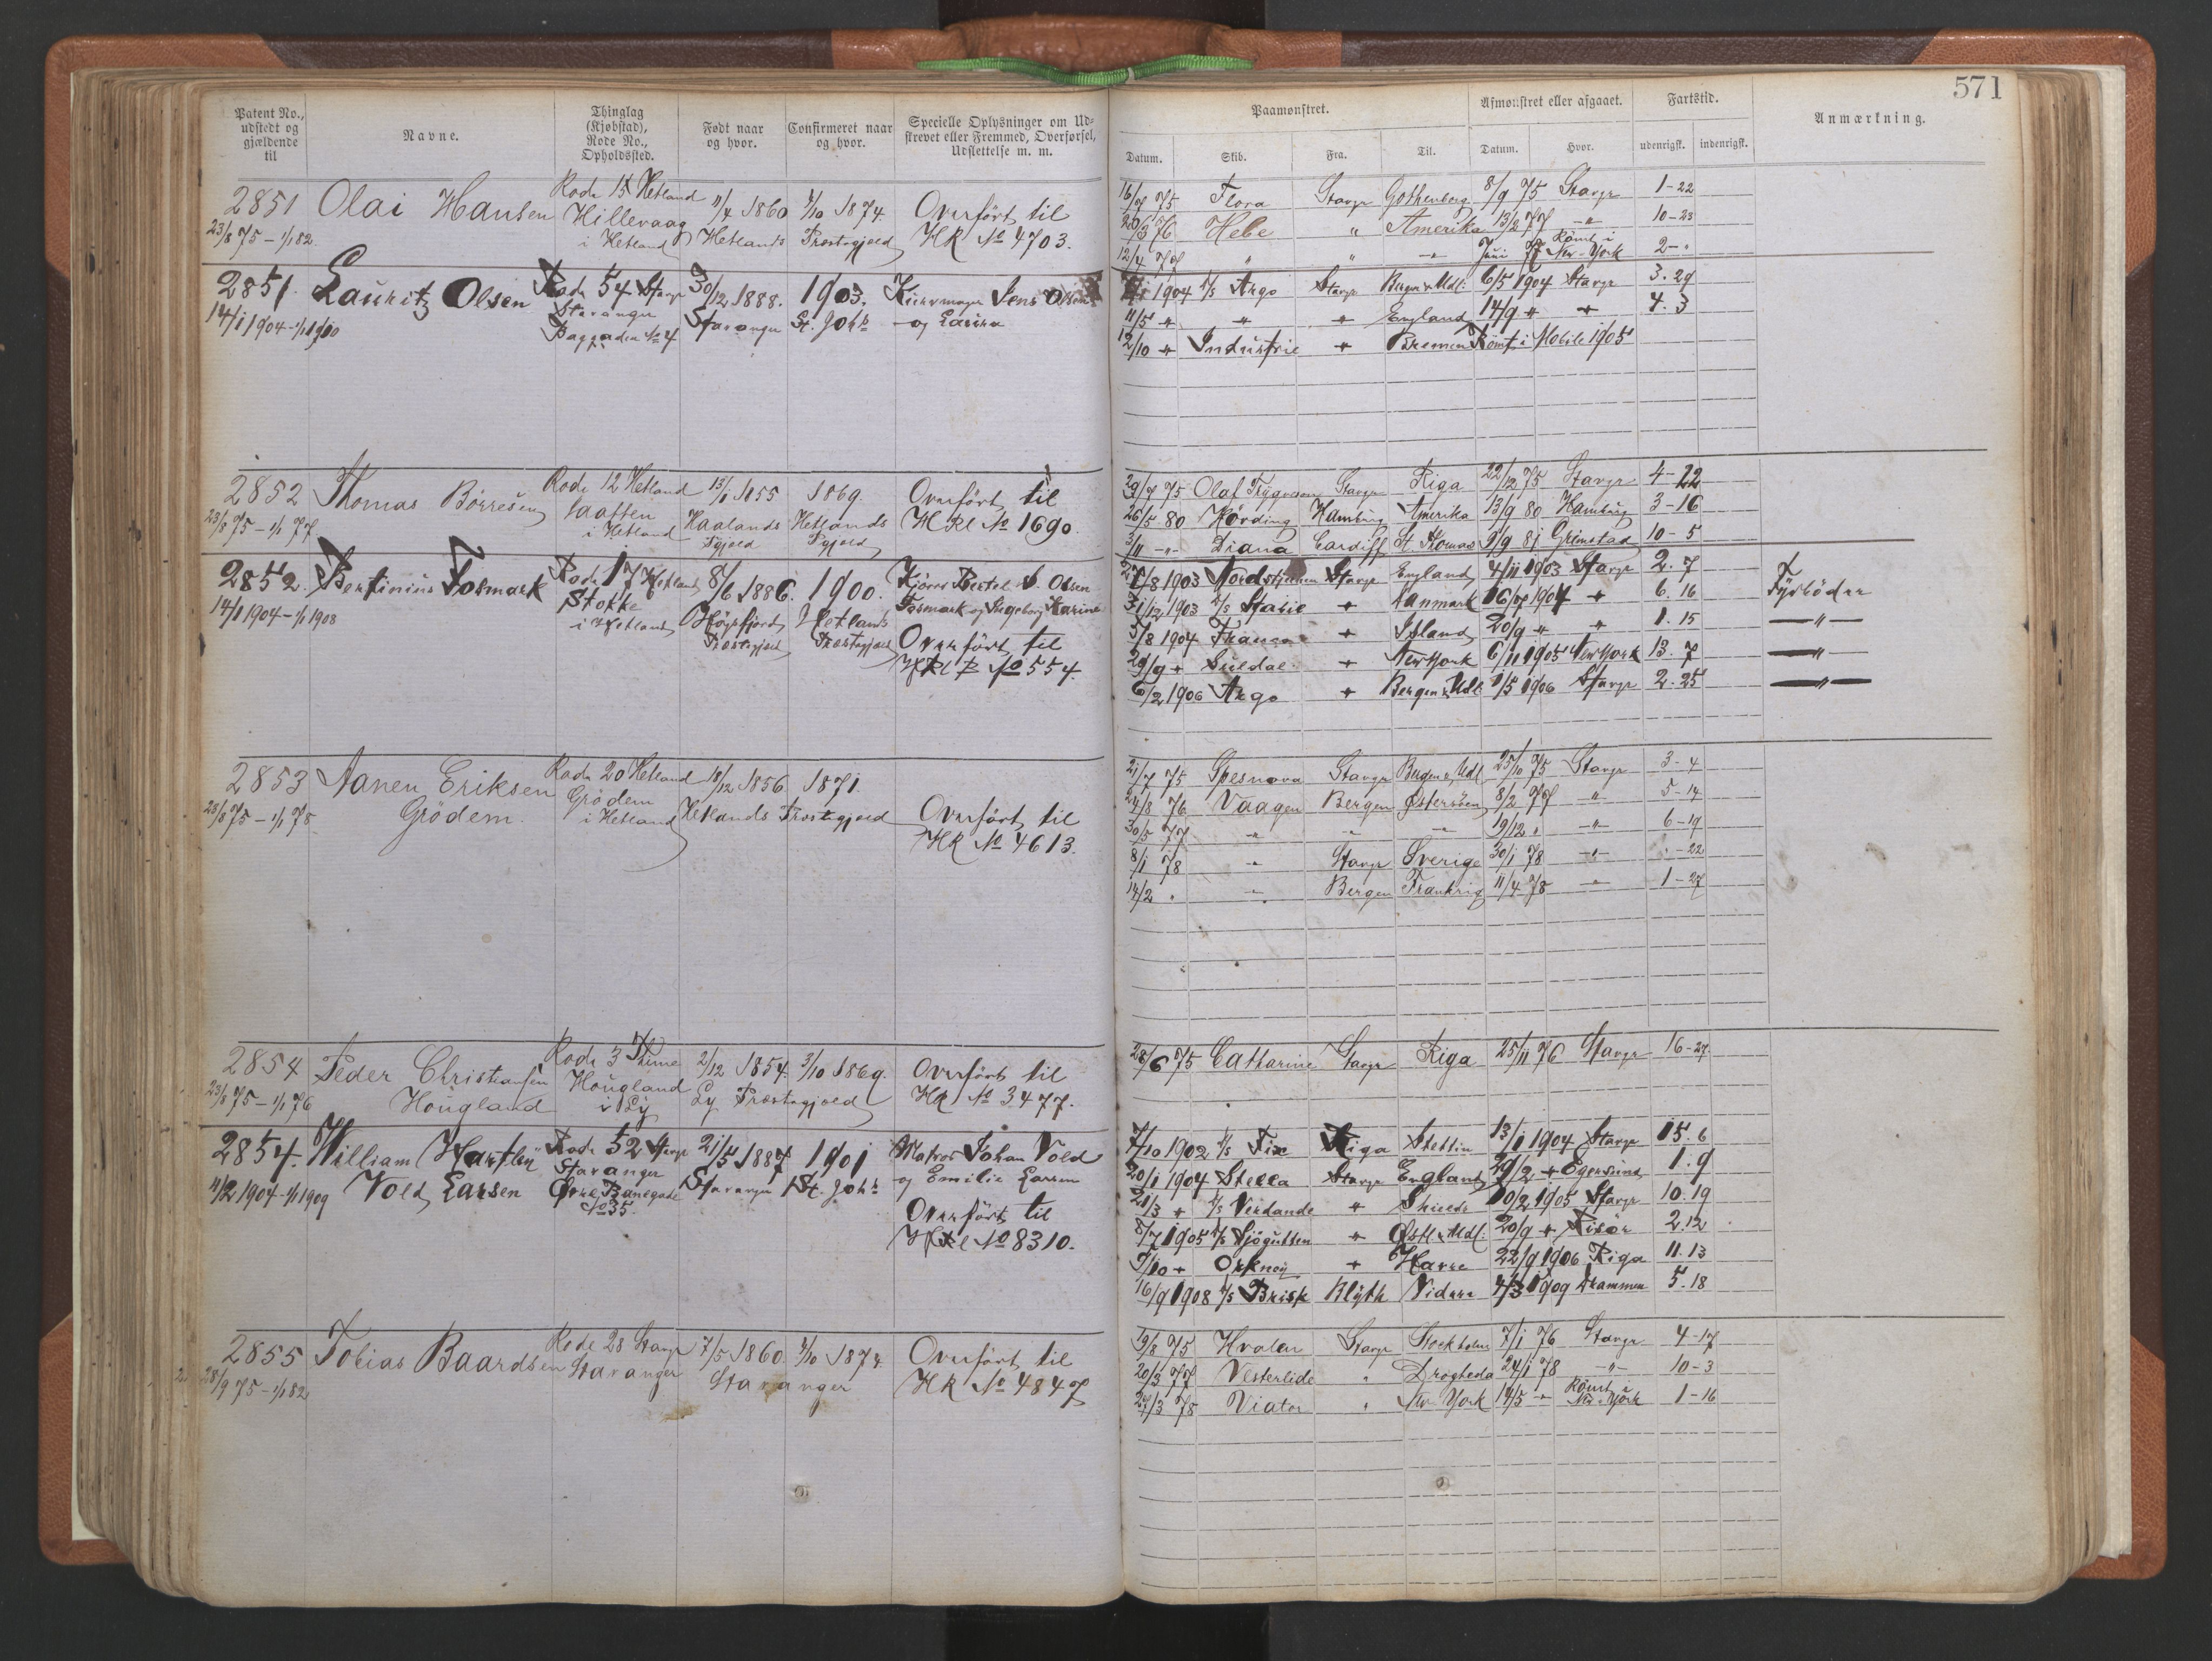 571
Patent No., udstedt og gjældende til
Navne.
Thinglag (Kjøbstad), Rode No., Opholdssted.
Født naar og hvor.
Confirmeret naar og hvor.
Specielle Oplysninger om Udskrevet eller Fremmed, Overførsel, Udslettelse m. m.
Paamønstret.
Afmønstret eller afgaaet.
Fartstid.
Anmærkning.
Datum.
Skib.
Fra.
Til.
Datum.
Hvor.
udenrigsk.
indenrigsk.
2851 Olai Hansen Rode 15 Hetland 11/4 1860 4/10 1874 Overført til
23/8 75 – 1/1 82 Hillevaag i Hetland Hetlands Præstegjæld HR No 4703.
16/7 75 Flora Stavgr Gothenborg 8/9 75 Stavgr 1-22
/3 76 Hebe " Amerika 13/2 77 -"- 10-23
12/4 77 " " -"- Juni 77 Römt i New-York 2-"
2851. Lauritz Olsen Rode 54 Stavgr 30/12 1888. 1903. Jens Olsen
14/1 1904 - 1/1 1910 Stavanger Stavanger St. Johs og Laura
Baggaden No 4
1904 D/S Argo Stavgr Bergen & Udl: 6/5 1904 Stavgr 3.29
11/5 " " " England 14/9 " " 4.3
12/10 " Industrie " Bremen Römt i Mobile 1905
2852 Thomas Börresen Rode 12 Hetland 13/1 1855 1869. Overført til
23/8 75 – 1/1 77 i Hetland Haalands Pgjæld Hetlands Pgjæld HRl No 1690.
29/7 75 Olaf Trygvason Stavgr Riga 22/12 75 Stavgr 4-22
26/5 80 Hörding Hamburg Amerika 13/9 80 Hamburg 3-16
3/11 -"- Diana Cardiff St. Thomas 9/9 81 Grimstad 10-5
2852. Bertinius Fosmark Rode 17 Hetland 8/6 1886. 1900. Bertel S. Olsen
14/1 1904 - 1/1 1908 Stokke i Hetland Høgsfjords Præstegjæld Hetlands Præstegjæld Fosmark og Ingeborg Karine
Overført til
No 554.
/8 1903 Nordstjernen Stavgr England 4/11 1903 Stavgr 2.7
31/12 1903 D/S Stabil " Danmark 16/7 1904 " 6.16 Fyrböder
3/8 1904 " Island 20/9 " " 1.15 -"-
29/9 " Suldal " New York 6/11 1905 New York 13.7 -"-
6/2 1906 Argo " Bergen & Udl: 1/5 1906 Stavgr 2.25 -"-
2853 Aanen Eriksen Rode 20 Hetland 18/12 1856 1871.
28/8 75 – 1/1 78 Grödem. Grödem i Hetland Hetlands Præstegjæld Overført til
HR No 4613.
21/7 75 Spesnova Stavgr Bergen & Udl 25/10 75 Stavgr 3-4
24/8 76 Vaagen Bergen Østersöen 8/2 77 " 5-14
30/5 77 " " " 19/12 " -"- 6-19
8/1 78 " Stavgr Sverige 30/1 78 -"- "-22
14/2 " " Bergen Frankrig 11/4 78 " 1-27
2854 Peder Christiansen Rode 3 Thime 2/12 1854 3/10 1869. Overført til
23/8 75 – 1/1 76 Hougland Hougland i Ly Ly Præstegjæld HR No 3477.
28/6 75 Catharine Stavgr Riga 25/11 76 Stavgr 16-27
2854. William Hartley Rode 52 Stavgr 21/5 1887 1901 Matros Johan Vold
11/2 1904 - 1/1 1909 Vold Larsen Stavanger Stavanger St. Johs og Emilie Larsen
Øvre Banegade No 35. Overført til
HRl No 8310.
7/10 1902 D/S Fix Riga Stettin 13/1 1904 Stavgr 15.6
20/1 1904 Stella Stavgr England 29/2 " Egersund 1.9
21/3 " D/S Verdande " Shields 10/2 1905 Stavgr 10.19
8/7 1905 D/S Sjøgutten " Østl & Udl: 20/9 " Risör 2.12
9/10 " Orknøy " Havre 22/9 1906 Riga 11.13
16/9 1908 D/S Brisk Blyth Vidare 4/3 1909 Drammen 5.18
2855 Tobias Baardsen Rode 28 Stavgr 7/5 1860 4/10 1874 Overført til
28/9 75 – 1/1 82 Stavanger Stavanger HR No 4847
19/8 75 Hvalen Stavgr Stockholm 7/1 76 Stavgr 4-17
20/3 77 Vesterlide " Drogheda 24/1 78 -"- 10-3
/3 78 Viator " New York 14/5 " Römt i New-York 1-16